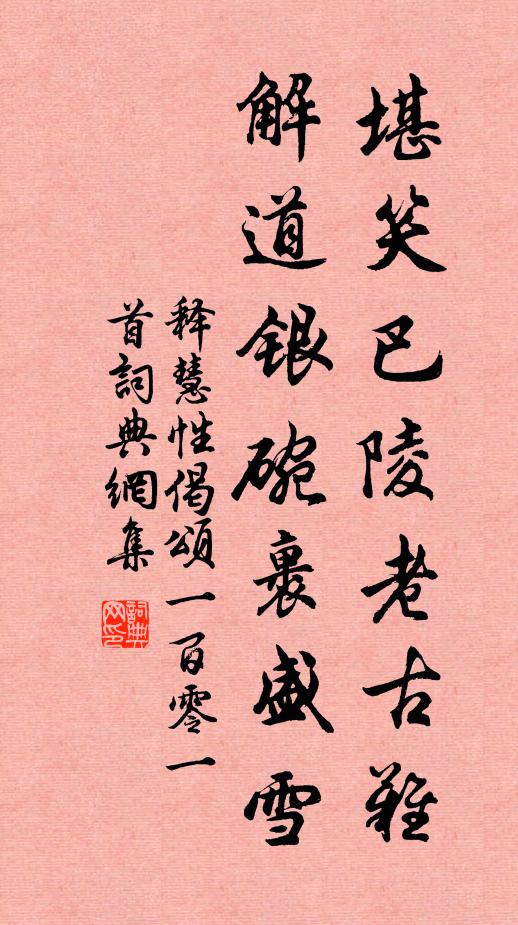 堪笑巴陵老古難
解道銀碗裹盛雪
释慧性偈頌一百零一
首詞典網集
詞典
网印